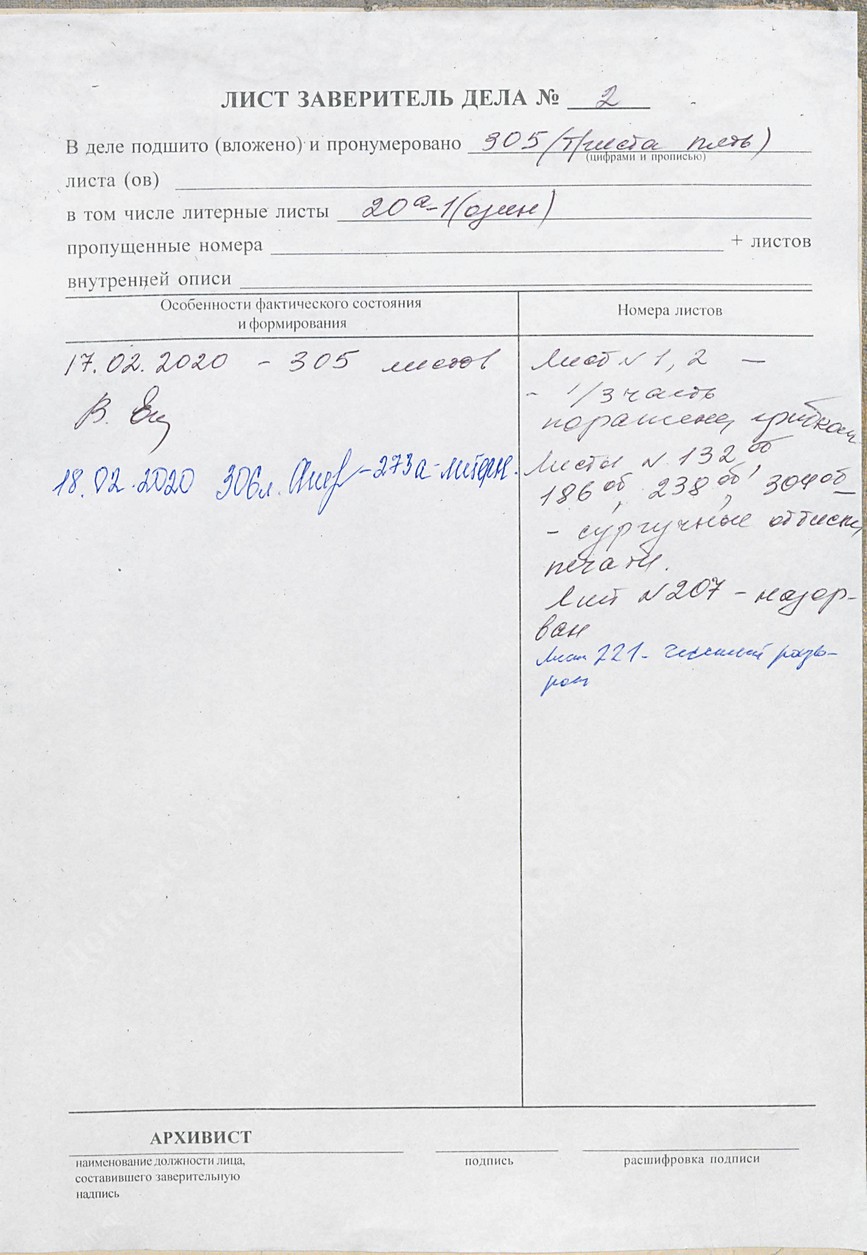 ЛИСТ ЗАВЕРИТЕЛЬ ДЕЛА № 2
В деле подшито (вложено) и пронумеровано 305 (триста пять)
(цифрами и прописью)
листа (ов)
в том числе литерные листы 20а-1 (один)
пропущенные номера + листов
внутренней описи
Особенности фактического состояния
и формирования
Номера листов
17.02.2020 - 305 листов
В.
18.02.2020 306 л. - 273а - литерн.
Лист N 1, 2 —
- 1/3 часть
поражена грибком
Листы N 132 об
186 об, 238 об, 304 об
- сургучные оттиски
печати.
Лист N 207 - надор-
ван
Лист 221 - разво-
рот
АРХИВИСТ
наименование должности лица,
составившего заверительную
надпись
подпись
расшифровка подписи